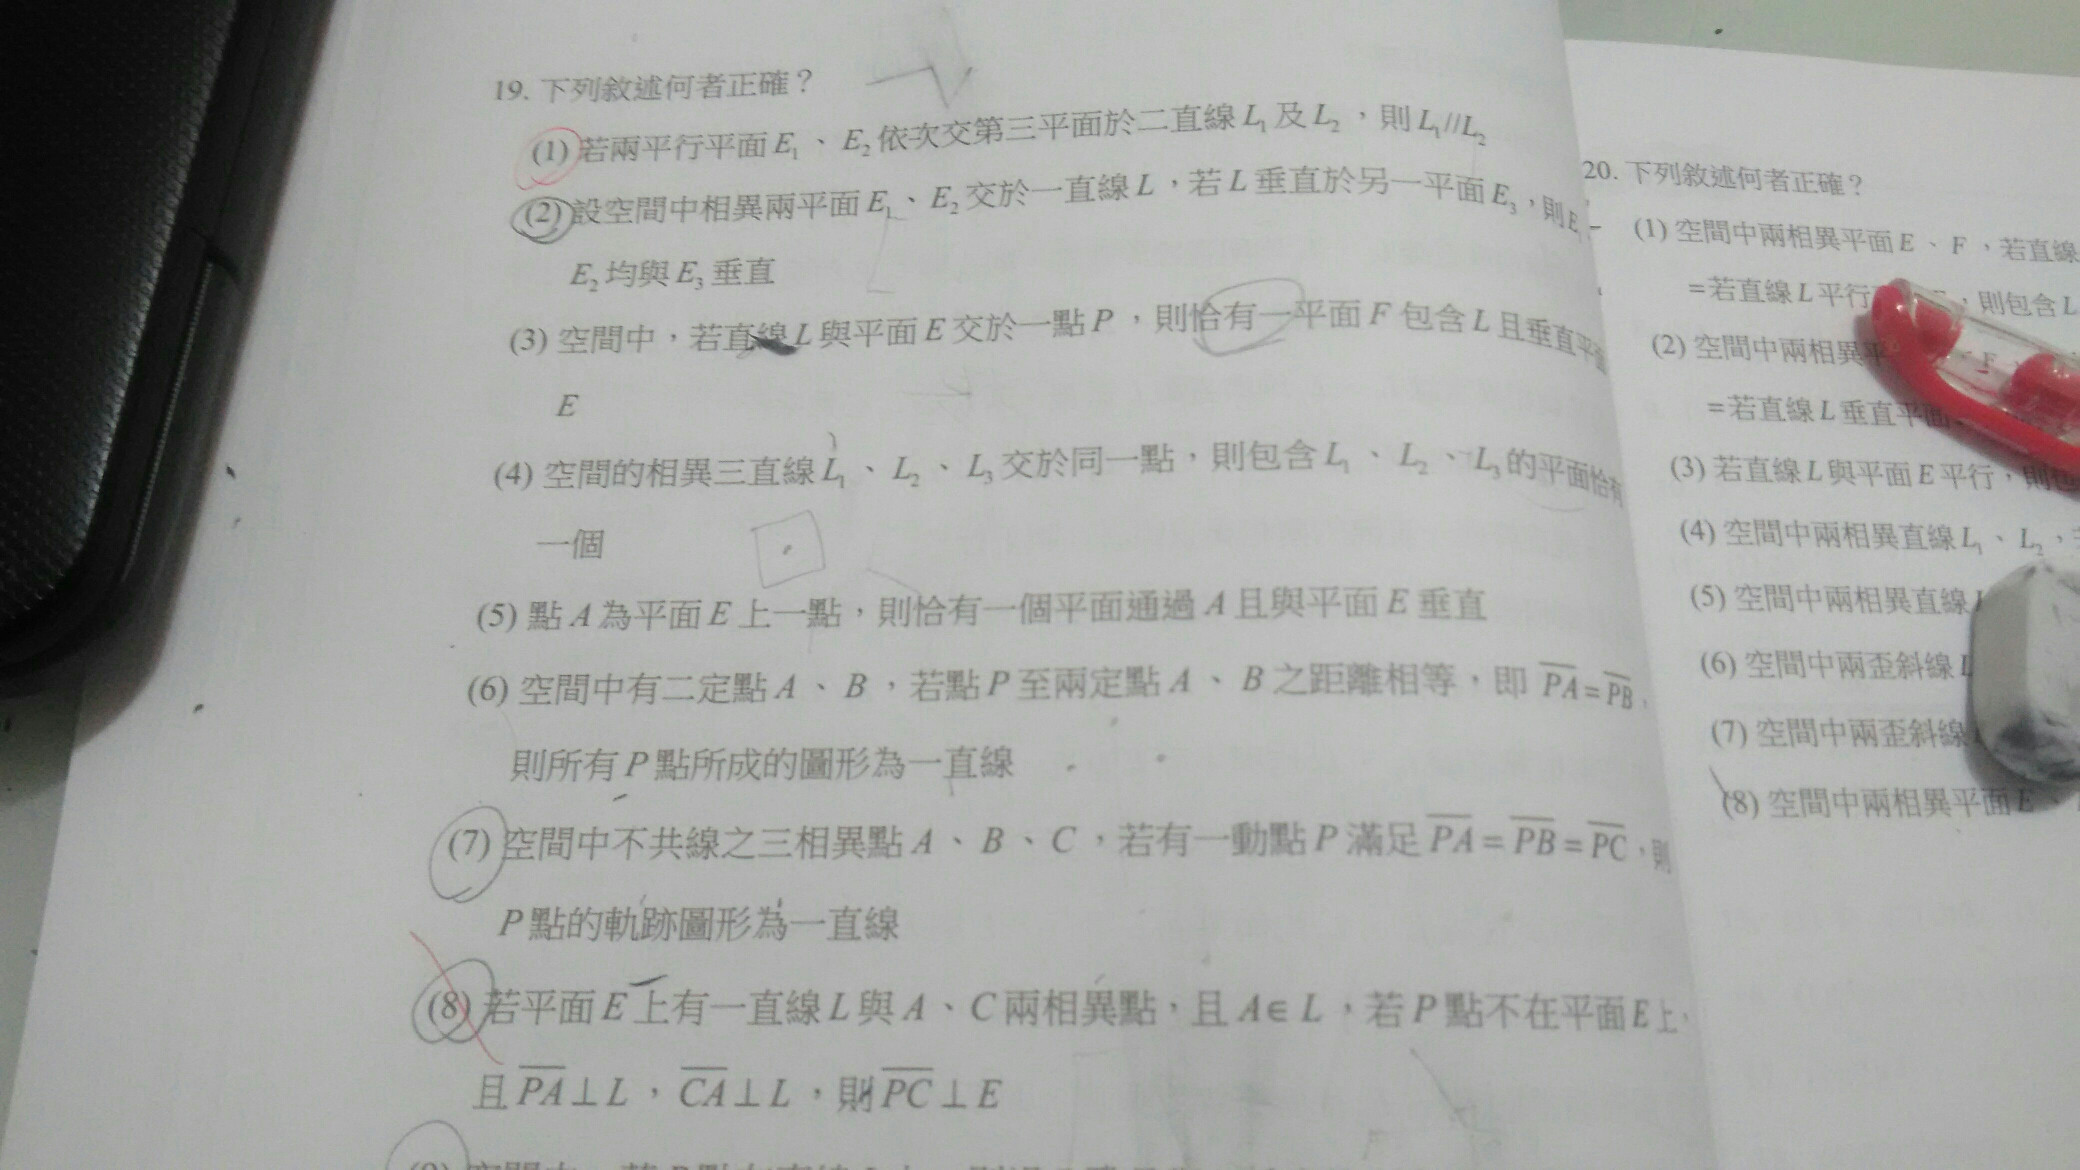 19. 下列敘述何者正確？
(1) 若兩平行平面 E₁、E₂ 依次交第三平面於二直線 L₁ 及 L₂，則 L₁//L₂
(2) 設空間中相異兩平面 E₁、E₂ 交於一直線 L，若 L 垂直於另一平面 E₃，則 E
E₂ 均與 E₃ 垂直
(3) 空間中，若直線 L 與平面 E 交於一點 P，則恰有一平面 F 包含 L 且垂直平面
E
(4) 空間的相異三直線 L₁、L₂、L₃ 交於同一點，則包含 L₁、L₂、L₃ 的平面恰有
一個
(5) 點 A 為平面 E 上一點，則恰有一個平面通過 A 且與平面 E 垂直
(6) 空間中有二定點 A、B，若點 P 至兩定點 A、B 之距離相等，即 P̅A̅=P̅B̅，
則所有 P 點所成的圖形為一直線
(7) 空間中不共線之三相異點 A、B、C，若有一動點 P 滿足 P̅A̅=P̅B̅=P̅C̅，則
P 點的軌跡圖形為一直線
(8) 若平面 E 上有一直線 L 與 A、C 兩相異點，且 A∈L，若 P 點不在平面 E 上，
且 P̅A̅⊥L，C̅A̅⊥L，則 P̅C̅⊥E
20. 下列敘述何者正確？
(1) 空間中兩相異平面 E、F，若直線
=若直線 L 平行 ，則包含 L
(2) 空間中兩相異平 F
=若直線 L 垂直平面
(3) 若直線 L 與平面 E 平行，則包
(4) 空間中兩相異直線 L₁、L₂，
(5) 空間中兩相異直線
(6) 空間中兩歪斜線 L
(7) 空間中兩歪斜線
(8) 空間中兩相異平面 E、